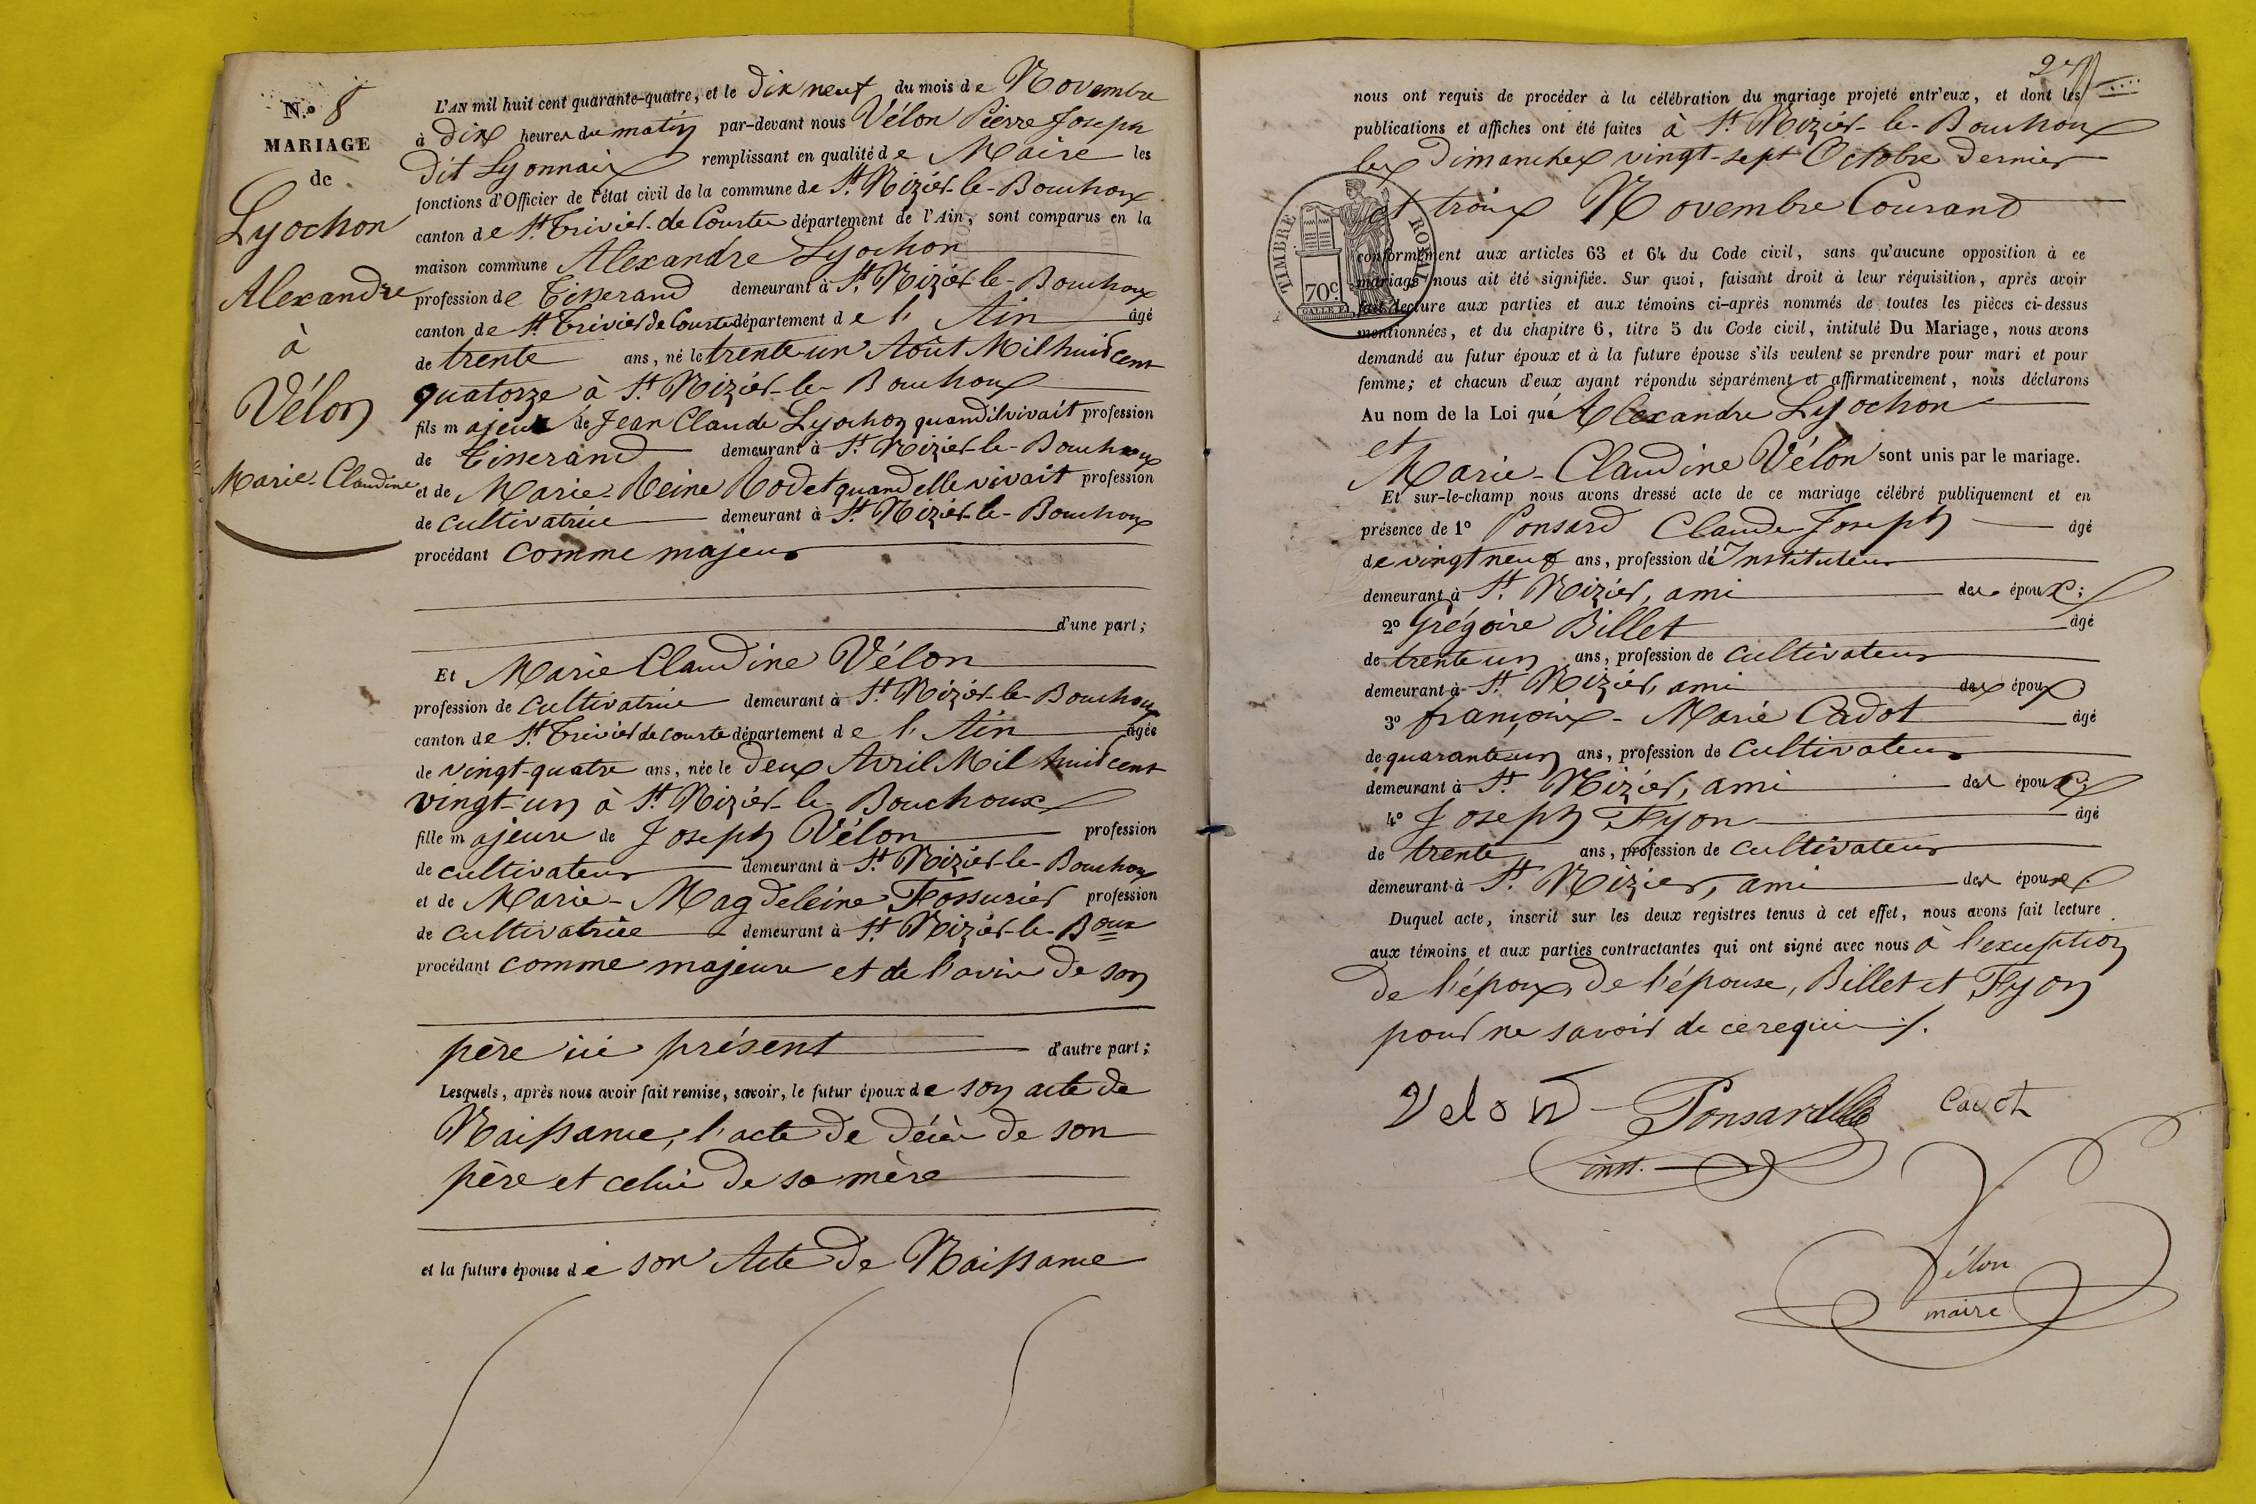 N.o 8
MARIAGE
de
Lyochon
Alexandre
à
Vélon
Marie-Claudine
L'AN mil huit cent quarante-quatre, et le dix neuf du mois de Novembre
à dix heures du matin par-devant nous Vélon Pierre Joseph
dit Lyonnais remplissant en qualité de Maire les
fonctions d'Officier de l'état civil de la commune de St Nizier-le-Bouchoux
canton de St Trivier-de-Courtes département de l'Ain, sont comparus en la
maison commune Alexandre Lyochon
profession de Tisserand demeurant à St Nizier-le-Bouchoux
canton de St Trivier de Courtes département de l'Ain âgé
de trente ans, né le trente un Août Mil huit cent
quatorze à St Nizier-le-Bouchoux
fils majeur de Jean Claude Lyochon quand il vivait profession
de Tisserand demeurant à St Nizier-le-Bouchoux
et de Marie-Reine Rodet quand elle vivait profession
de cultivatrice demeurant à St Nizier-le-Bouchoux
procédant comme majeur
d'une part;
Et Marie Claudine Vélon
profession de cultivatrice demeurant à St Nizier-le-Bouchoux
canton de St Trivier de Courtes département de l'Ain âgée
de vingt-quatre ans, née le deux Avril Mil huit cent
vingt-un à St Nizier-le-Bouchoux
fille majeure de Joseph Vélon profession
de cultivateur demeurant à St Nizier-le-Bouchoux
et de Marie-Magdeleine Fossurier profession
de cultivatrice demeurant à St Nizier-le-Boux
procédant comme majeure et de l'avis de son
père ici présent d'autre part;
Lesquels, après nous avoir fait remise, savoir, le futur époux de son acte de
Naissance, l'acte de décès de son
père et celui de sa mère
et la future épouse de son Acte de Naissance
27
nous ont requis de procéder à la célébration du mariage projeté entr'eux, et dont les
publications et affiches ont été faites à St Nizier-le-Bouchoux
les Dimanches vingt-sept Octobre dernier
et trois Novembre Courant
TIMBRE ROYAL
70c
conformément aux articles 63 et 64 du Code civil, sans qu'aucune opposition à ce
mariage nous ait été signifiée. Sur quoi, faisant droit à leur réquisition, après avoir
fait lecture aux parties et aux témoins ci-après nommés de toutes les pièces ci-dessus
mentionnées, et du chapitre 6, titre 5 du Code civil, intitulé Du Mariage, nous avons
demandé au futur époux et à la future épouse s'ils veulent se prendre pour mari et pour
femme; et chacun d'eux ayant répondu séparément et affirmativement, nous déclarons
Au nom de la Loi que Alexandre Lyochon
et
Marie-Claudine Vélon sont unis par le mariage.
Et sur-le-champ nous avons dressé acte de ce mariage célébré publiquement et en
présence de 1o Ponsard Claude Joseph âgé
de vingt neuf ans, profession de Instituteur
demeurant à St Nizier, ami des époux;
2o Grégoire Billet âgé
de trente un ans, profession de cultivateur
demeurant à St Nizier, ami des époux
3o françois-Marie Cadot âgé
de quarante un ans, profession de cultivateur
demeurant à St Nizier, ami des époux;
4o Joseph Fyon âgé
de trente ans, profession de cultivateur
demeurant à St Nizier, ami des époux.
Duquel acte, inscrit sur les deux registres tenus à cet effet, nous avons fait lecture
aux témoins et aux parties contractantes qui ont signé avec nous à l'exception
de l'époux, de l'épouse, Billet et Fyon
pour ne savoir de ce requis ./.
Velon Ponsard Cadot
inst.
Vélon
maire